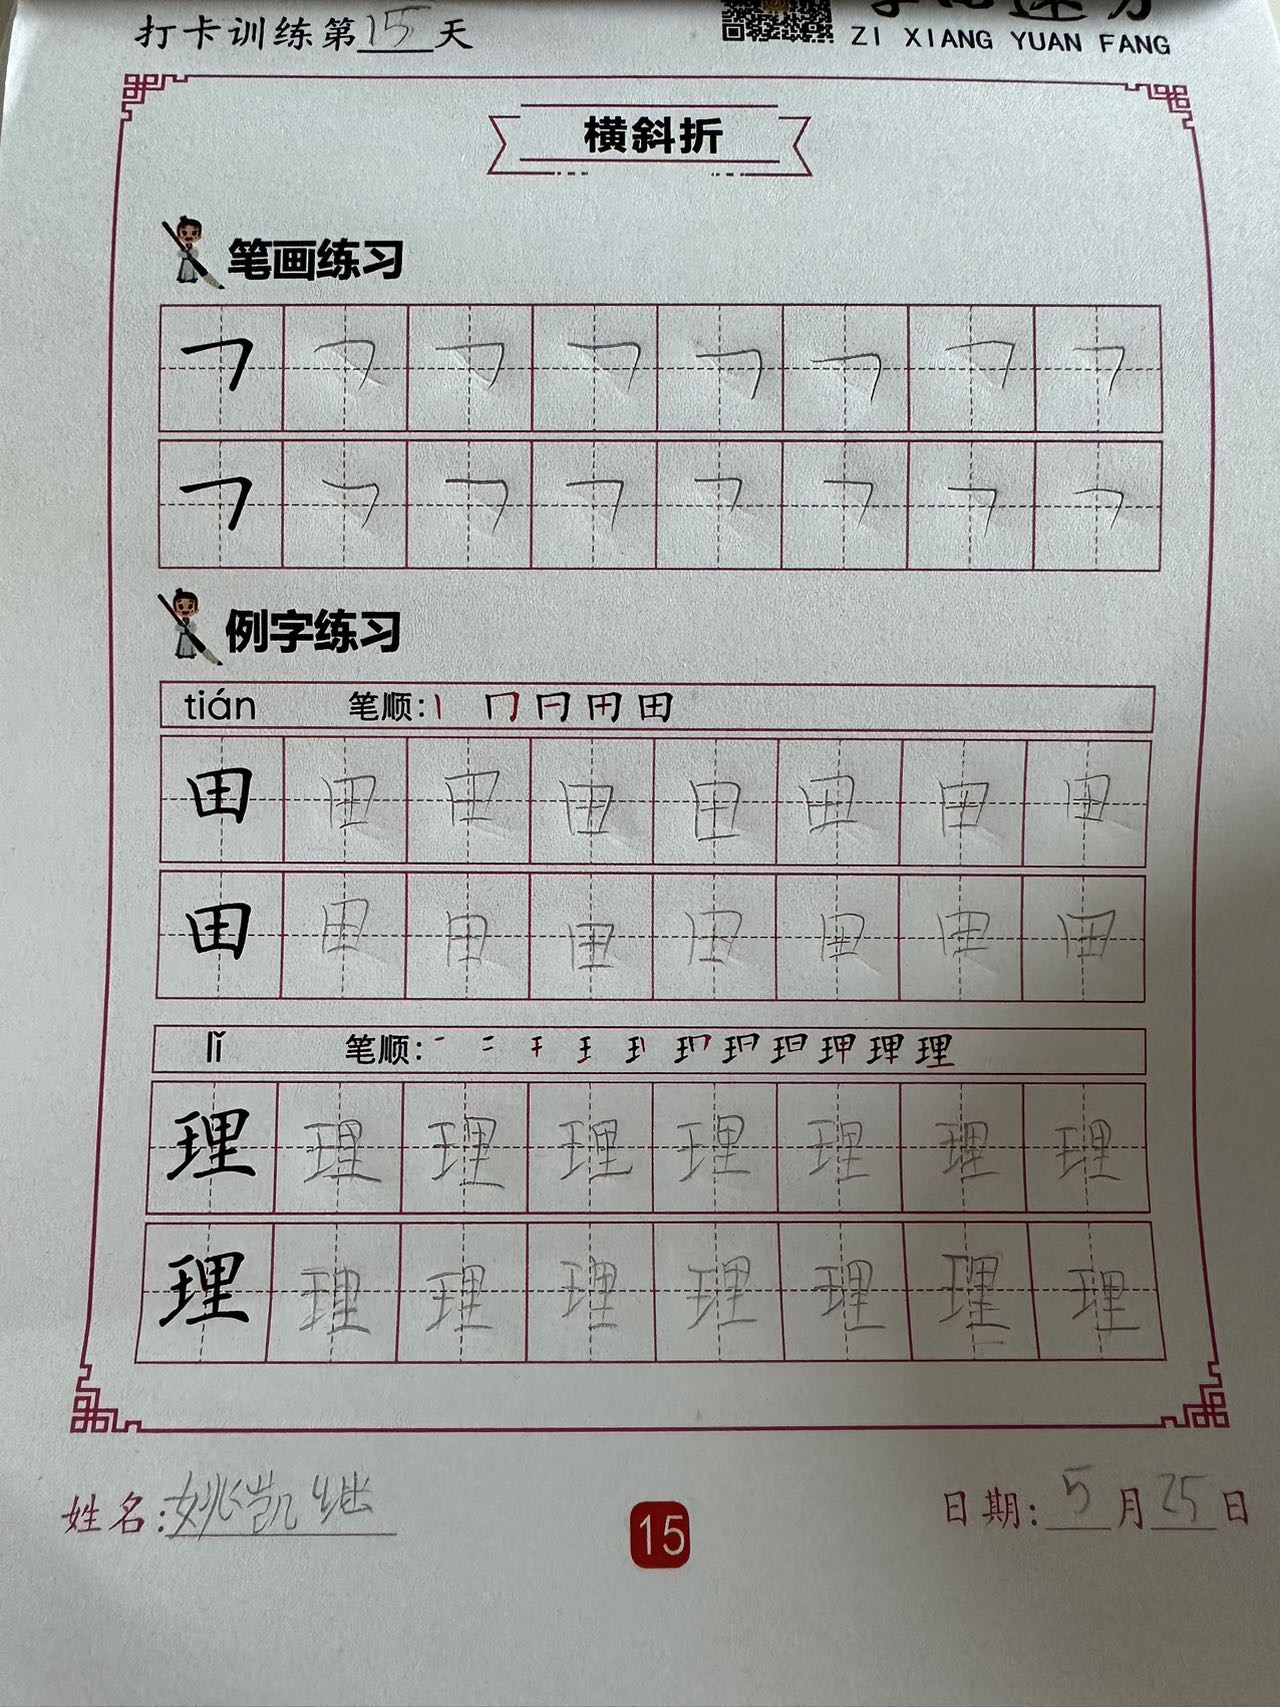 打卡训练第15天
ZI XIANG YUAN FANG
横斜折
笔画练习
例字练习
tián 笔顺:
田 田 田 田 田 田 田 田
田 田 田 田 田 田 田 田
lǐ 笔顺:
理 理 理 理 理 理 理 理
理 理 理 理 理 理 理 理
姓名:姚凯继
15
日期:5月25日